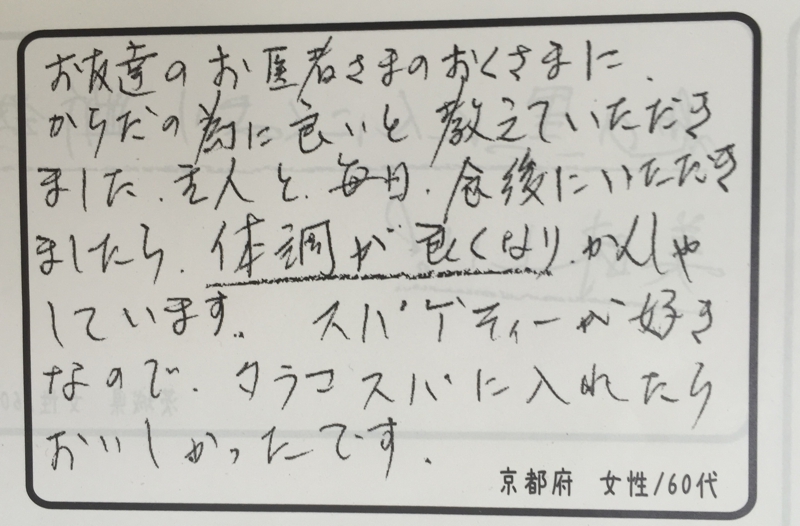 お友達のお医者さまのおくさまに、
からだの為に良いと教えていただき
ました。主人と、毎日、食後にいただき
ましたら、体調が良くなり、かんしゃ
しています。スパゲティーが好き
なので、タラコスパに入れたら
おいしかったです。
京都府 女性/60代